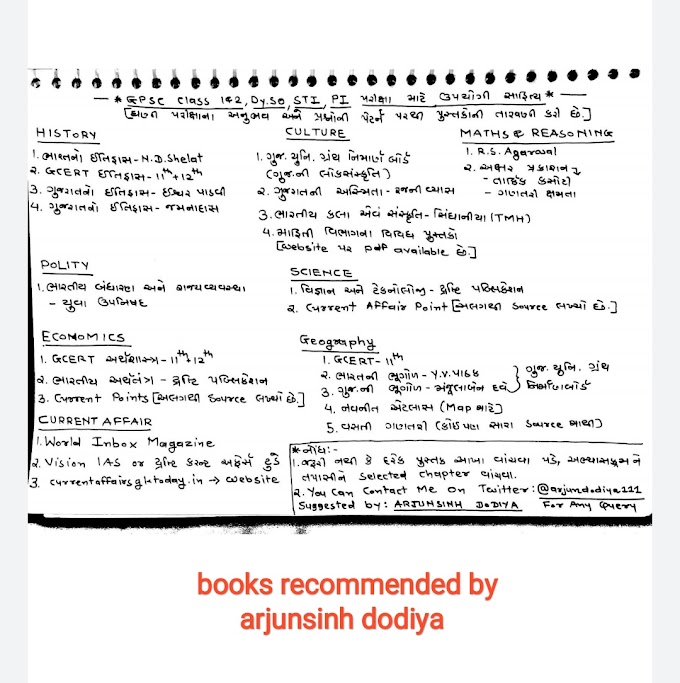 * GPSC Class 1&2, Dy.SO, STI, PI પરીક્ષા માટે ઉપયોગી સાહિત્ય *
[છેલ્લી પરીક્ષાના અનુભવ અને પ્રશ્નોની પેટર્ન પરથી પુસ્તકોની તારવણી કરી છે.]
HISTORY
1. ભારતનો ઈતિહાસ - N.D. Shelat
2. GCERT ઈતિહાસ - 11th + 12th
3. ગુજરાતનો ઈતિહાસ - ઈશ્વર પાડવી
4. ગુજરાતનો ઈતિહાસ - જમનાદાસ
CULTURE
1. ગુજ. યુનિ. ગ્રંથ નિર્માણ બોર્ડ
(ગુજ.ની લોકસંસ્કૃતિ)
2. ગુજરાતની અસ્મિતા - રજની વ્યાસ
3. ભારતીય કલા એવં સંસ્કૃતિ - સિંઘાનીયા (TMH)
4. માહિતી વિભાગના વિવિધ પુસ્તકો
[website પર pdf available છે.]
MATHS & REASONING
1. R.S. Agarwal
2. અક્ષર પ્રકાશન
- તાર્કિક કસોટી
- ગાણતરી ક્ષમતા
POLITY
1. ભારતીય બંધારણ અને રાજ્યવ્યવસ્થા
- યુવા ઉપનિષદ
SCIENCE
1. વિજ્ઞાન અને ટેકનોલોજી - દ્રષ્ટિ પબ્લિકેશન
2. Current Affair Point [અલગથી source લખ્યો છે.]
ECONOMICS
1. GCERT અર્થશાસ્ત્ર - 11th + 12th
2. ભારતીય અર્થતંત્ર - દ્રષ્ટિ પબ્લિકેશન
3. Current Points [અલગથી Source લખ્યો છે.]
Geography
1. GCERT - 11th
2. ભારતની ભૂગોળ - Y.V. પાઠક
3. ગુજ.ની ભૂગોળ - મંજુલાબેન દવે
ગુજ. યુનિ. ગ્રંથ
નિર્માણબોર્ડ
4. નવનીત એટલાસ (Map માટે)
5. વસતી ગણતરી (કોઈપણ સારા Source માંથી)
CURRENT AFFAIR
1. World Inbox Magazine
2. Vision IAS or દ્રષ્ટિ કરન્ટ અફેર્સ ટુડે
3. currentaffairs.gktoday.in → website
* નોંધ:-
1. જરૂરી નથી કે દરેક પુસ્તક આખા વાંચવા પડે, અભ્યાસક્રમને
તપાસીને selected chapter વાંચવા.
2. You Can Contact Me on Twitter: @arjundodiya111
Suggested by: ARJUNSINH DODIYA For Any Query
books recommended by
arjunsinh dodiya